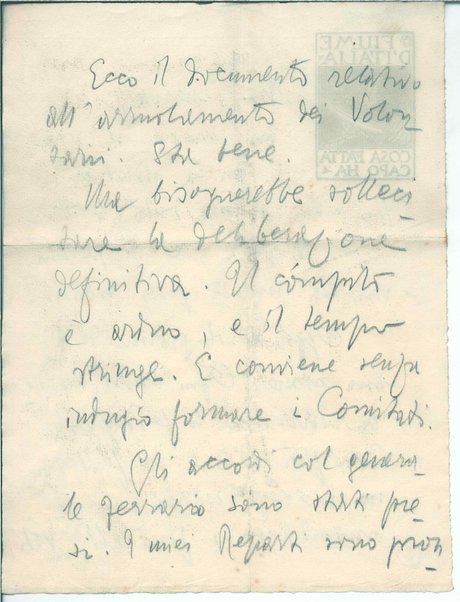 Ecco il documento relativo
all'arruolamento dei Volon
tarii. Sta bene.
Ma bisognerebbe solleci
tare la deliberazione
definitiva. Il cómpito
è arduo, e il tempo
stringe. E conviene senza
indugio formare i Comitati.
Gli accordi col genera-
le Ferrario sono stati pre-
si. I miei Reparti sono pron
FIUME
D'ITALIA
COSA FATTA
CAPO HA